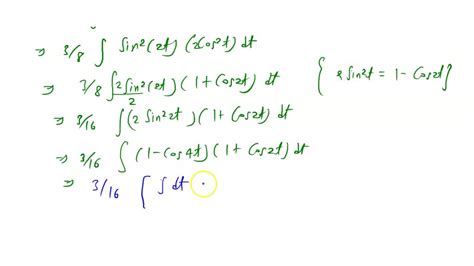 ⇒ 3/8 ∫ Sin²(2t) (2Cos²t) dt
⇒ 3/8 ∫ 2Sin²(2t)/2 (1 + Cos2t) dt
{ 2Sin²t = 1 - Cos2t }
⇒ 3/16 ∫ (2 Sin²2t) (1 + Cos2t) dt
⇒ 3/16 ∫ (1 - Cos4t) (1 + Cos2t) dt
⇒ 3/16 [ ∫ dt